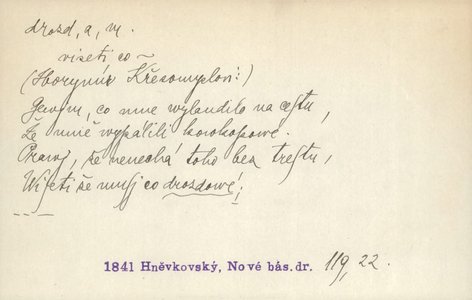 drozd, a, m.
viseti co ~
(Horymír Křesomyslovi:)
Gewím, co mne wyloudilo na cestu,
Že mně wypálili kowkopowé.
Prawj, že nenechá toho bez trestu,
Wiseti še musj co drozdowé;
1841 Hněvkovský, Nové bás. dr. 119, 22.